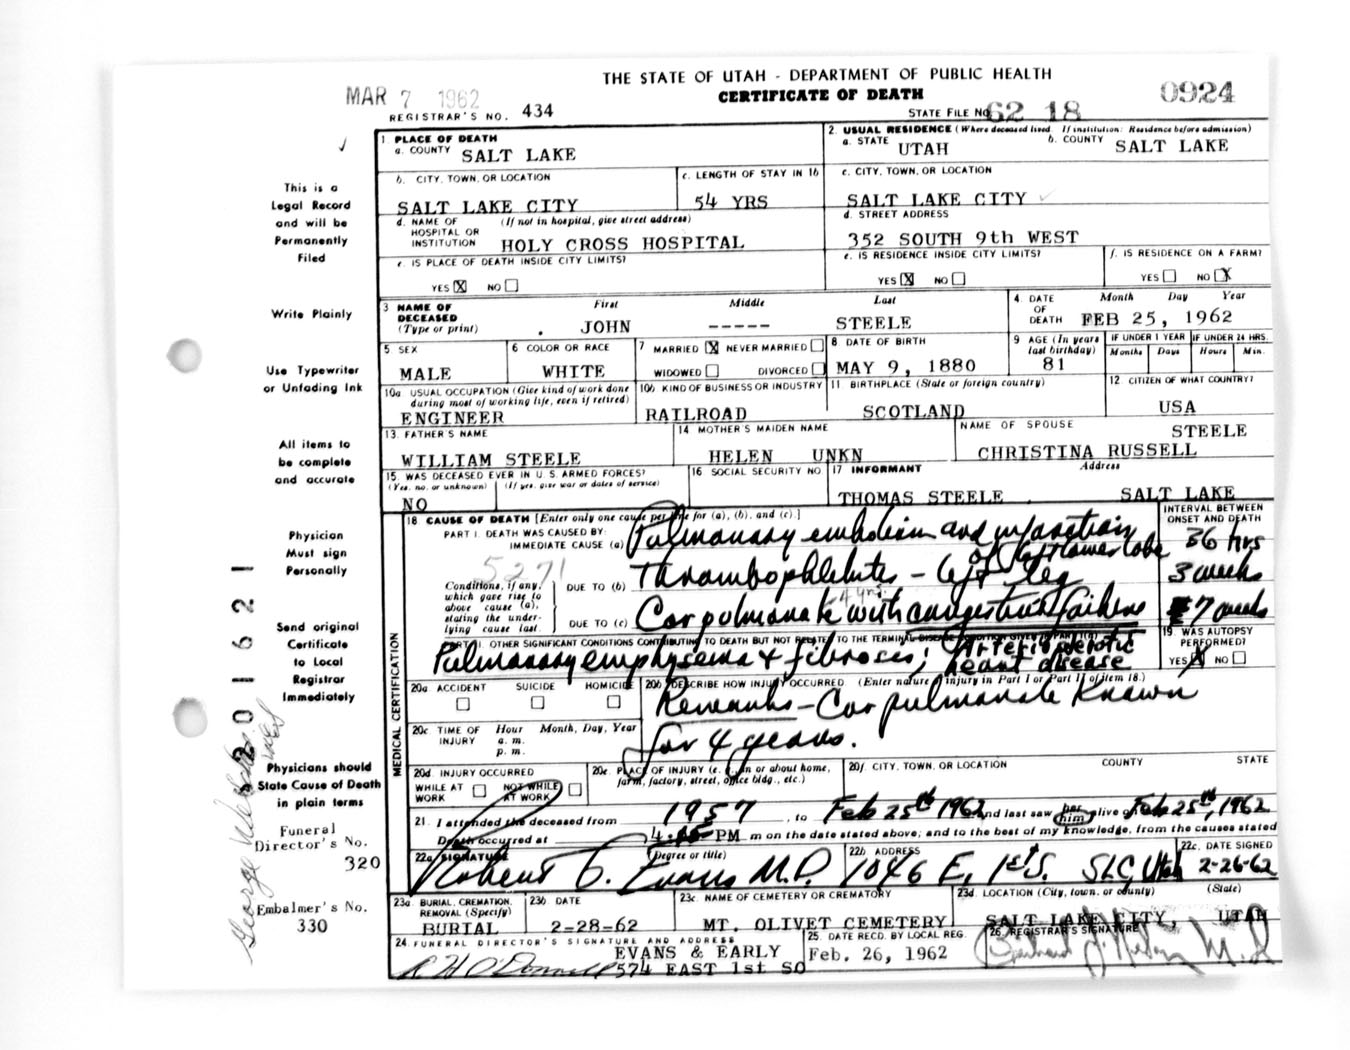 THE STATE OF UTAH - DEPARTMENT OF PUBLIC HEALTH
CERTIFICATE OF DEATH
MAR 7 1962
0924
REGISTRAR'S NO. 434
STATE FILE NO. 62 18
This is a
Legal Record
and will be
Permanently
Filed
Write Plainly
Use Typewriter
or Unfading Ink
All items to
be complete
and accurate
Physician
Must sign
Personally
Send original
Certificate
to Local
Registrar
Immediately
Physicians should
State Cause of Death
in plain terms
Funeral
Director's No.
320
Embalmer's No.
330
1. PLACE OF DEATH
a. COUNTY SALT LAKE
2. USUAL RESIDENCE (Where deceased lived. If institution: Residence before admission)
a. STATE UTAH b. COUNTY SALT LAKE
b. CITY, TOWN, OR LOCATION
SALT LAKE CITY
c. LENGTH OF STAY IN 1b
54 YRS
c. CITY, TOWN, OR LOCATION
SALT LAKE CITY
d. NAME OF HOSPITAL OR INSTITUTION (If not in hospital, give street address)
HOLY CROSS HOSPITAL
d. STREET ADDRESS
352 SOUTH 9th WEST
e. IS PLACE OF DEATH INSIDE CITY LIMITS?
YES X NO
e. IS RESIDENCE INSIDE CITY LIMITS?
YES X NO
f. IS RESIDENCE ON A FARM?
YES NO X
3 NAME OF DECEASED (Type or print)
First Middle Last
JOHN ----- STEELE
4. DATE OF DEATH Month Day Year
FEB 25, 1962
5 SEX
MALE
6 COLOR OR RACE
WHITE
7 MARRIED X NEVER MARRIED
WIDOWED DIVORCED
8 DATE OF BIRTH
MAY 9, 1880
9 AGE (In years last birthday)
81
IF UNDER 1 YEAR
Months Days
IF UNDER 24 HRS.
Hours Min.
10a USUAL OCCUPATION (Give kind of work done during most of working life, even if retired)
ENGINEER
10b KIND OF BUSINESS OR INDUSTRY
RAILROAD
11 BIRTHPLACE (State or foreign country)
SCOTLAND
12 CITIZEN OF WHAT COUNTRY?
USA
13. FATHER'S NAME
WILLIAM STEELE
14 MOTHER'S MAIDEN NAME
HELEN UNKN
NAME OF SPOUSE
STEELE
CHRISTINA RUSSELL
15. WAS DECEASED EVER IN U. S. ARMED FORCES?
(Yes, no, or unknown) (If yes, give war or dates of service)
NO
16 SOCIAL SECURITY NO.
17 INFORMANT Address
THOMAS STEELE SALT LAKE
MEDICAL CERTIFICATION
18 CAUSE OF DEATH [Enter only one cause per line for (a), (b), and (c).]
INTERVAL BETWEEN ONSET AND DEATH
PART I. DEATH WAS CAUSED BY:
IMMEDIATE CAUSE (a) Pulmonary embolism and infarction of left lower lobe 36 hrs
5271
Conditions, if any, which gave rise to above cause (a), stating the underlying cause last.
DUE TO (b) Thrombophlebitis - left leg 3 weeks
DUE TO (c) Cor pulmonale with congestive failure 7 weeks
4 yrs.
PART II. OTHER SIGNIFICANT CONDITIONS CONTRIBUTING TO DEATH BUT NOT RELATED TO THE TERMINAL DISEASE CONDITION GIVEN IN PART I(a)
Pulmonary emphysema & fibrosis; Arteriosclerotic heart disease
19. WAS AUTOPSY PERFORMED?
YES X NO
20a ACCIDENT SUICIDE HOMICIDE
20b DESCRIBE HOW INJURY OCCURRED (Enter nature of injury in Part I or Part II of item 18.)
Remarks - Cor pulmonale known
for 4 years.
20c TIME OF INJURY Hour Month, Day, Year
a. m.
p. m.
20d. INJURY OCCURRED
WHILE AT WORK NOT WHILE AT WORK
20e. PLACE OF INJURY (e. g., in or about home, farm, factory, street, office bldg., etc.)
20f. CITY, TOWN, OR LOCATION COUNTY STATE
21. I attended the deceased from 1957, to Feb 25th 1962 and last saw her him alive on Feb 25th, 1962
Death occurred at PM m on the date stated above; and to the best of my knowledge, from the causes stated
22a SIGNATURE (Degree or title)
Robert G. Evans M.D.
22b ADDRESS
1046 E. 1st S. SLC Utah
22c. DATE SIGNED
2-26-62
23a BURIAL, CREMATION, REMOVAL (Specify)
BURIAL
23b DATE
2-28-62
23c NAME OF CEMETERY OR CREMATORY
MT. OLIVET CEMETERY
23d. LOCATION (City, town, or county) (State)
SALT LAKE CITY, UTAH
24. FUNERAL DIRECTOR'S SIGNATURE AND ADDRESS
EVANS & EARLY
R H O'Donnell 574 EAST 1st SO
25. DATE RECD. BY LOCAL REG.
Feb. 26, 1962
26. REGISTRAR'S SIGNATURE